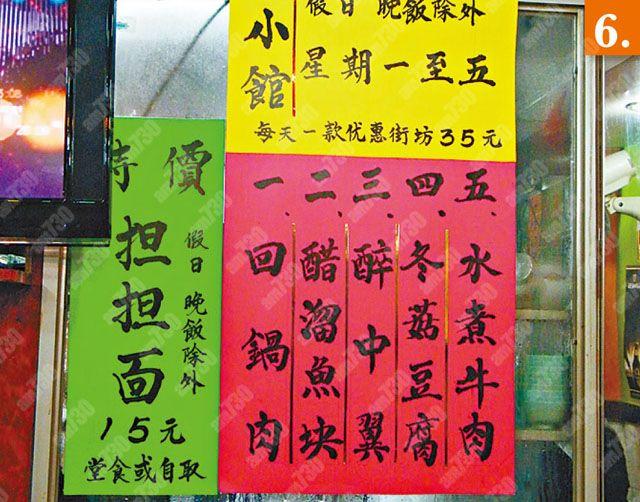 6.
小館
假日 晚飯除外
星期一至五
每天一款优惠街坊35元
一、回鍋肉
二、醋溜魚块
三、醉中翼
四、冬菇豆腐
五、水煮牛肉
特價
担担面
假日 晚飯除外
15元
堂食或自取
am730